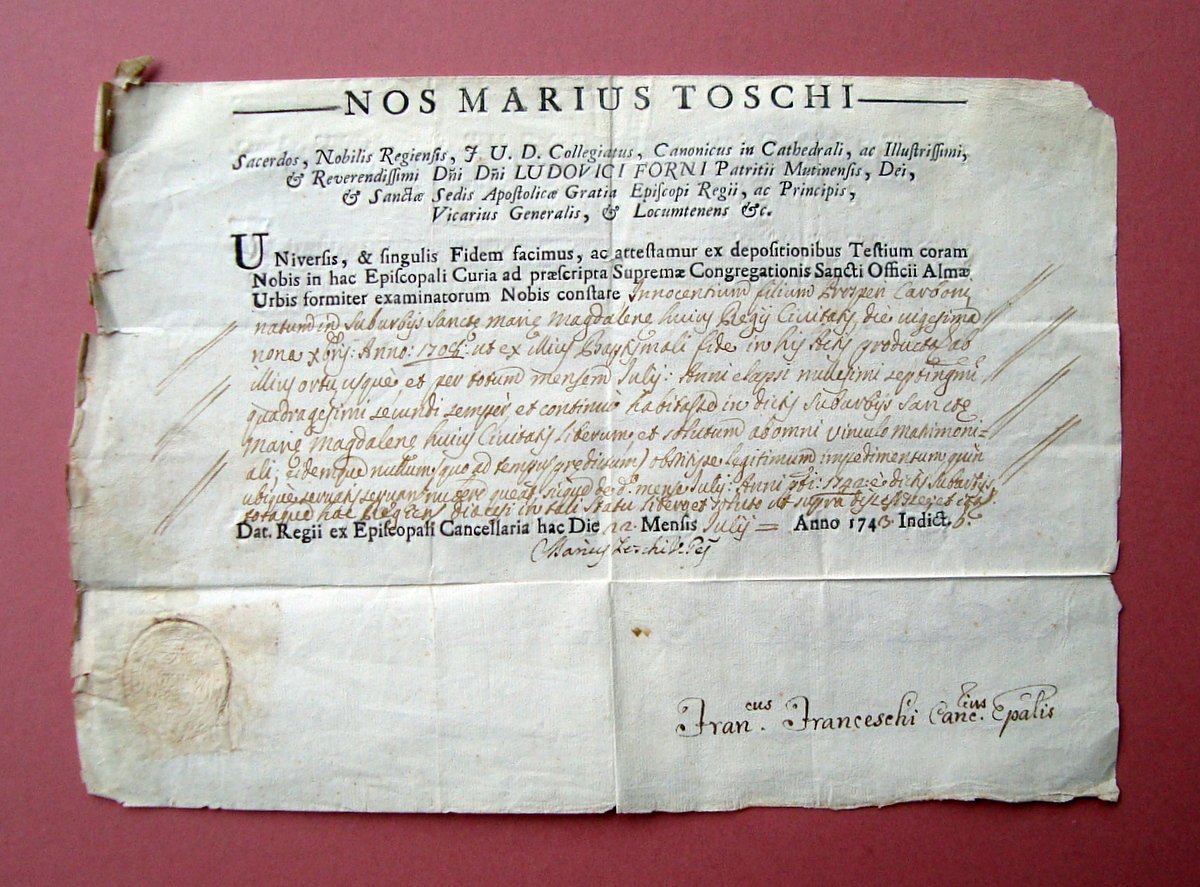 NOS MARIUS TOSCHI
Sacerdos, Nobilis Regiensis, J. U. D. Collegiatus, Canonicus in Cathedrali, ac Illustrissimi,
& Reverendissimi Dñi Dñi LUDOVICI FORNI Patritii Mutinensis, Dei,
& Sanctæ Sedis Apostolicæ Gratia Episcopi Regii, ac Principis,
Vicarius Generalis, & Locumtenens &c.
UNiversis, & singulis Fidem facimus, ac attestamur ex depositionibus Testium coram
Nobis in hac Episcopali Curia ad præscripta Supremæ Congregationis Sancti Officii Almæ
Urbis formiter examinatorum Nobis constare Innocentium filium Prosperi
natum in suburbijs sancte marie Magdalene huius Regij Civitatis die vigesima
nona Anno: ut ex illius Baptismali fide in his actis producta ab
illius ortu usque et per totum mensem Julij: Anni elapsi millesimi
quadragesimi secundi semper et continuo habitasse in dictis suburbijs sancte
marie Magdalene huius Civitatis liberum et solutum ab omni vinculo matrimoni-
ali; eidemque nullum quo ad tempus predictum obstitisse legitimum impedimentum quin
mense Julij Anni
diecesi in tali statu libero et soluto ut supra
Dat. Regii ex Episcopali Cancellaria hac Die 12 Mensis Julij Anno 1743 Indict. 6.
Marius Toschi
Fran.cus Franceschi Canc.rius Epalis